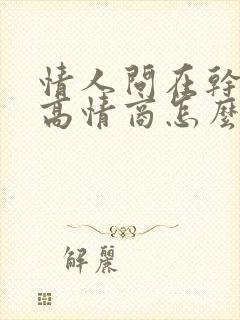 情人問在幹
高情商怎麼
解麗